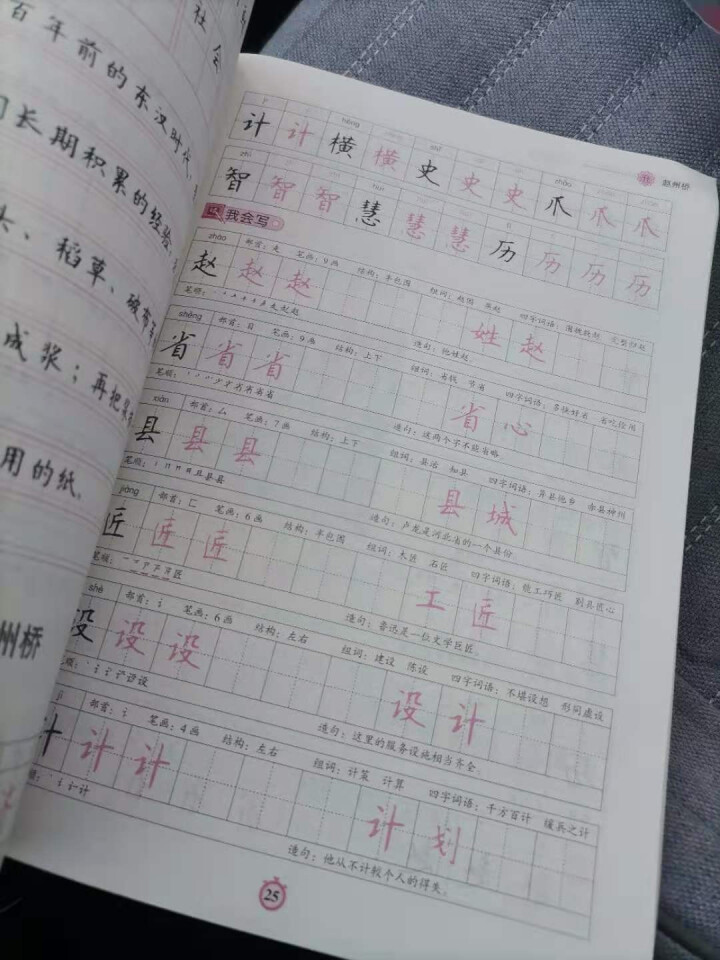 社会
百年前的东汉时代，
长期积累的经验，
、稻草、破布等
成浆；再把浆
用的纸。
州桥
11 赵州桥
计 计 横 横 史 史 史 爪 爪 爪
智 智 智 慧 慧 慧 历 历 历 历
我会写
zhào 部首：走 笔画：9画 结构：半包围 组词：赵国 四字词语：围魏救赵 完璧归赵
赵 赵 赵 姓 赵
造句：他姓赵。
shěng 部首：目 笔画：9画 结构：上下 组词：省钱 节省 四字词语：省吃俭用
省 省 省 省 心
造句：这两个字不能省略
xiàn 部首：厶 笔画：7画 结构：上下 组词：县治 知县 四字词语：异县他乡 赤县神州
县 县 县 县 城
造句：卢龙是河北省的一个县份
jiàng 部首：匚 笔画：6画 结构：半包围 组词：木匠 石匠 四字词语：能工巧匠 别具匠心
匠 匠 匠 工 匠
造句：鲁迅是一位文学巨匠。
shè 部首：讠 笔画：6画 结构：左右 组词：建设 陈设 四字词语：不堪设想 形同虚设
设 设 设 设 计
造句：这里的服务设施相当齐全。
部首：讠 笔画：4画 结构：左右 组词：计策 计算 四字词语：千方百计 缓兵之计
计 计 计 计 划
造句：他从不计较个人的得失。
25